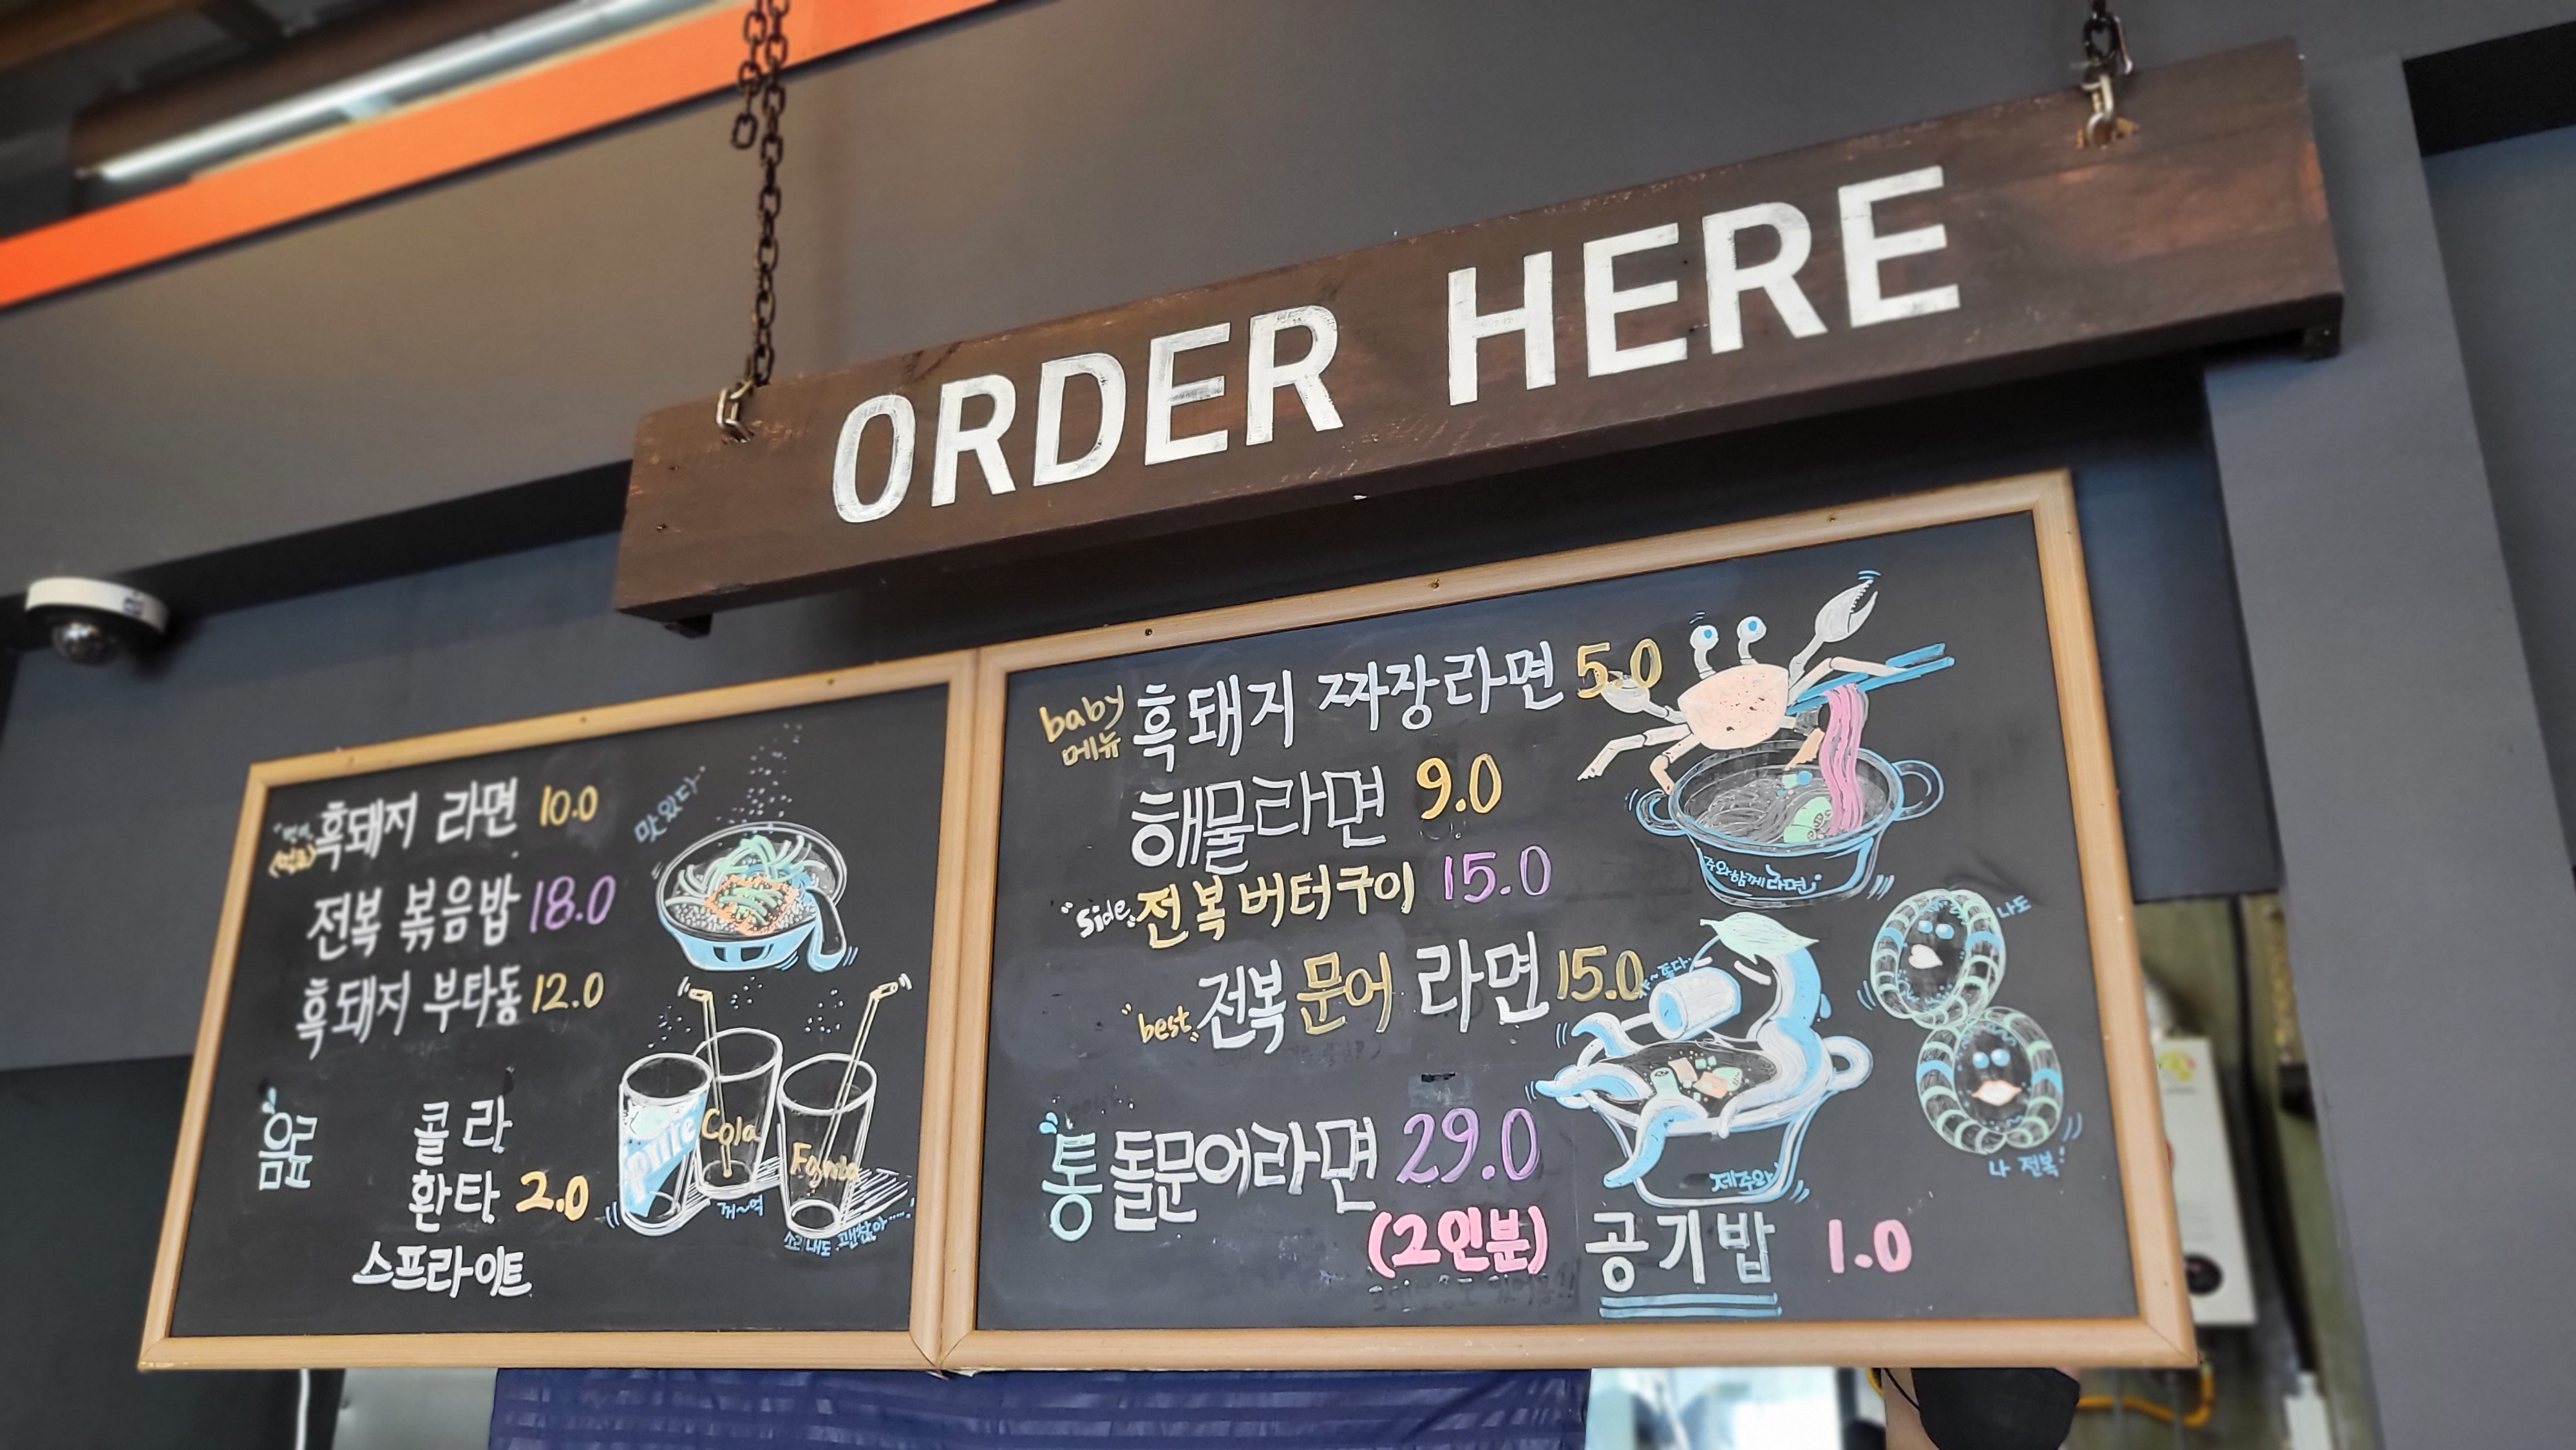 ORDER HERE
흑돼지 라면 10.0
맛있다
전복 볶음밥 18.0
흑돼지 부타동 12.0
음료
콜라
환타 2.0
스프라이트
Cola
Fanta
꺼~억
소리내도 괜찮아
baby
메뉴
흑돼지 짜장라면 5.0
해물라면 9.0
"side" 전복버터구이 15.0
"best" 전복 문어 라면 15.0
통돌문어라면 29.0
(2인분)
공기밥 1.0
나도
나 전복!